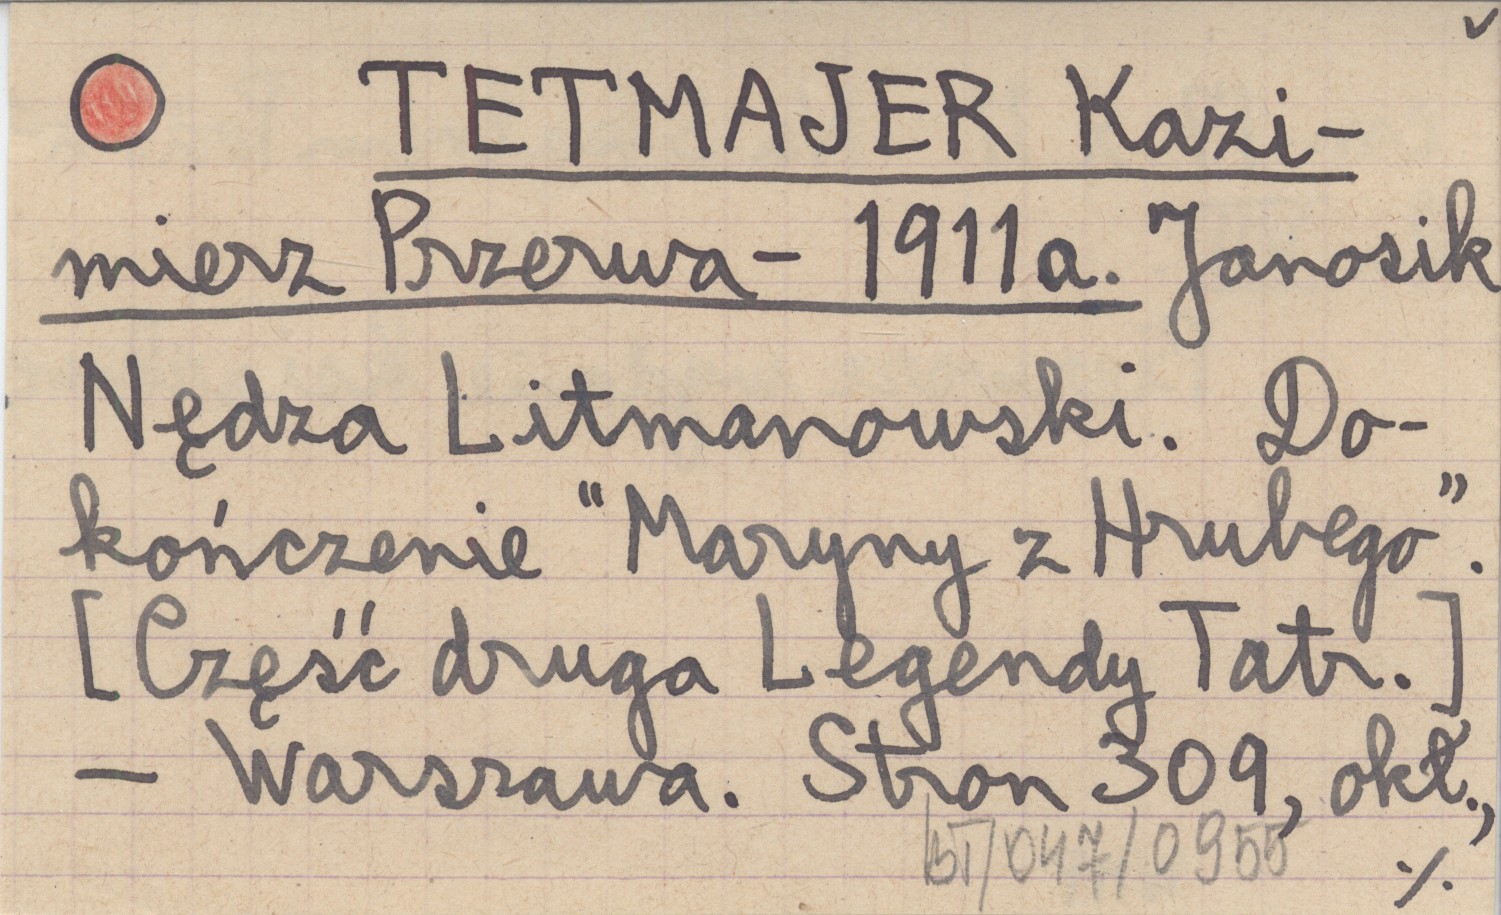 TETMAJER Kazi-
mierz Przerwa - 1911a. Janosik
Nędza Litmanowski. Do-
kończenie "Maryny z Hrubego".
[Część druga Legendy Tatr.]
— Warszawa. Stron 309, okł.,
/047/0955
./.